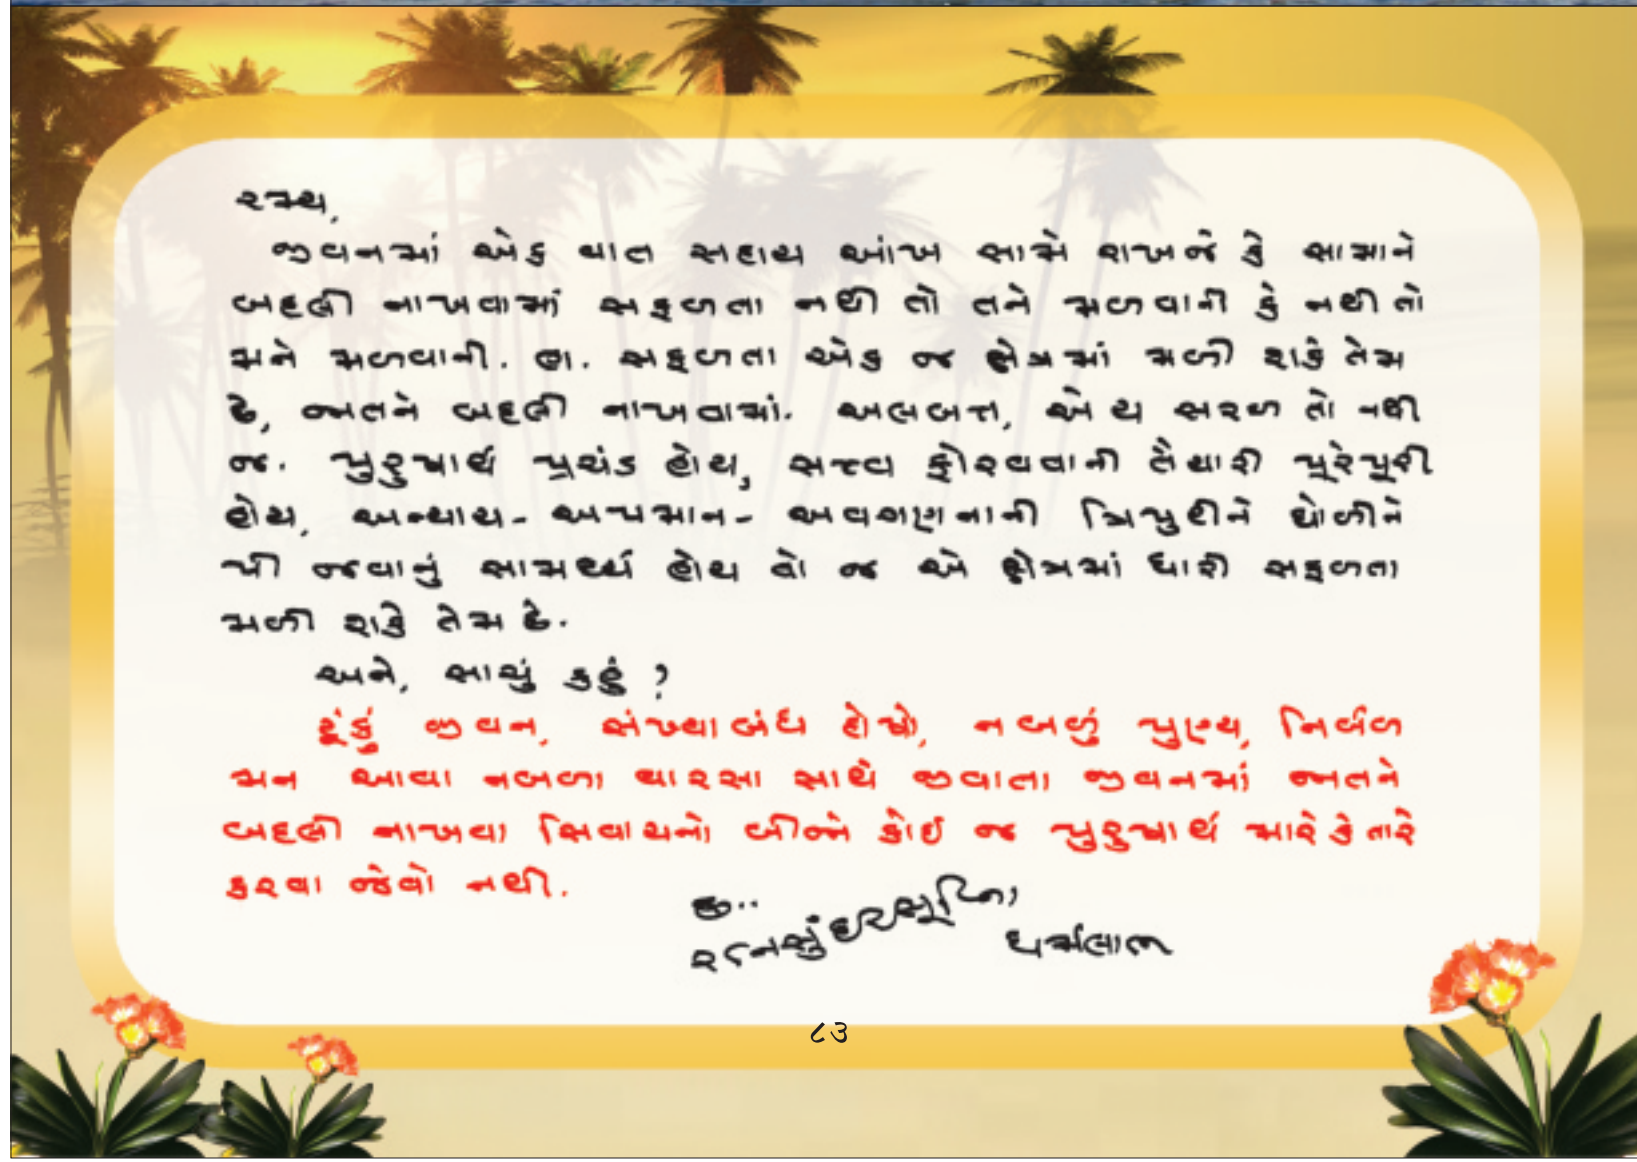 રમ્ય,
જીવનમાં એક વાત સદાય આંખ સામે રાખજે કે સામાને
બદલી નાખવામાં સફળતા નથી તો તને મળવાની કે નથી તો
મને મળવાની. હા. સફળતા એક જ ક્ષેત્રમાં મળી શકે તેમ
છે, જાતને બદલી નાખવામાં. અલબત્ત, એ ય સરળ તો નથી
જ. પુરુષાર્થ પ્રચંડ હોય, સત્ત્વ ફોરવવાની તૈયારી પૂરેપૂરી
હોય, અન્યાય-અપમાન-અવગણનાની ત્રિપુટીને ઘોળીને
પી જવાનું સામર્થ્ય હોય તો જ એ ક્ષેત્રમાં ધારી સફળતા
મળી શકે તેમ છે.
અને, સાચું કહું ?
ટૂંકું જીવન, સંખ્યાબંધ દોષો, નબળું પુણ્ય, નિર્બળ
મન આવા નબળા વારસા સાથે જીવાતા જીવનમાં જાતને
બદલી નાખવા સિવાયનો બીજો કોઈ જ પુરુષાર્થ મારે કે તારે
કરવા જેવો નથી.
દ..
રત્નસુંદરસૂરિના
ધર્મલાભ
૮૩